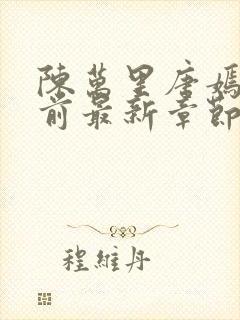 陳萬里唐嫣
前最新章節
程維丹